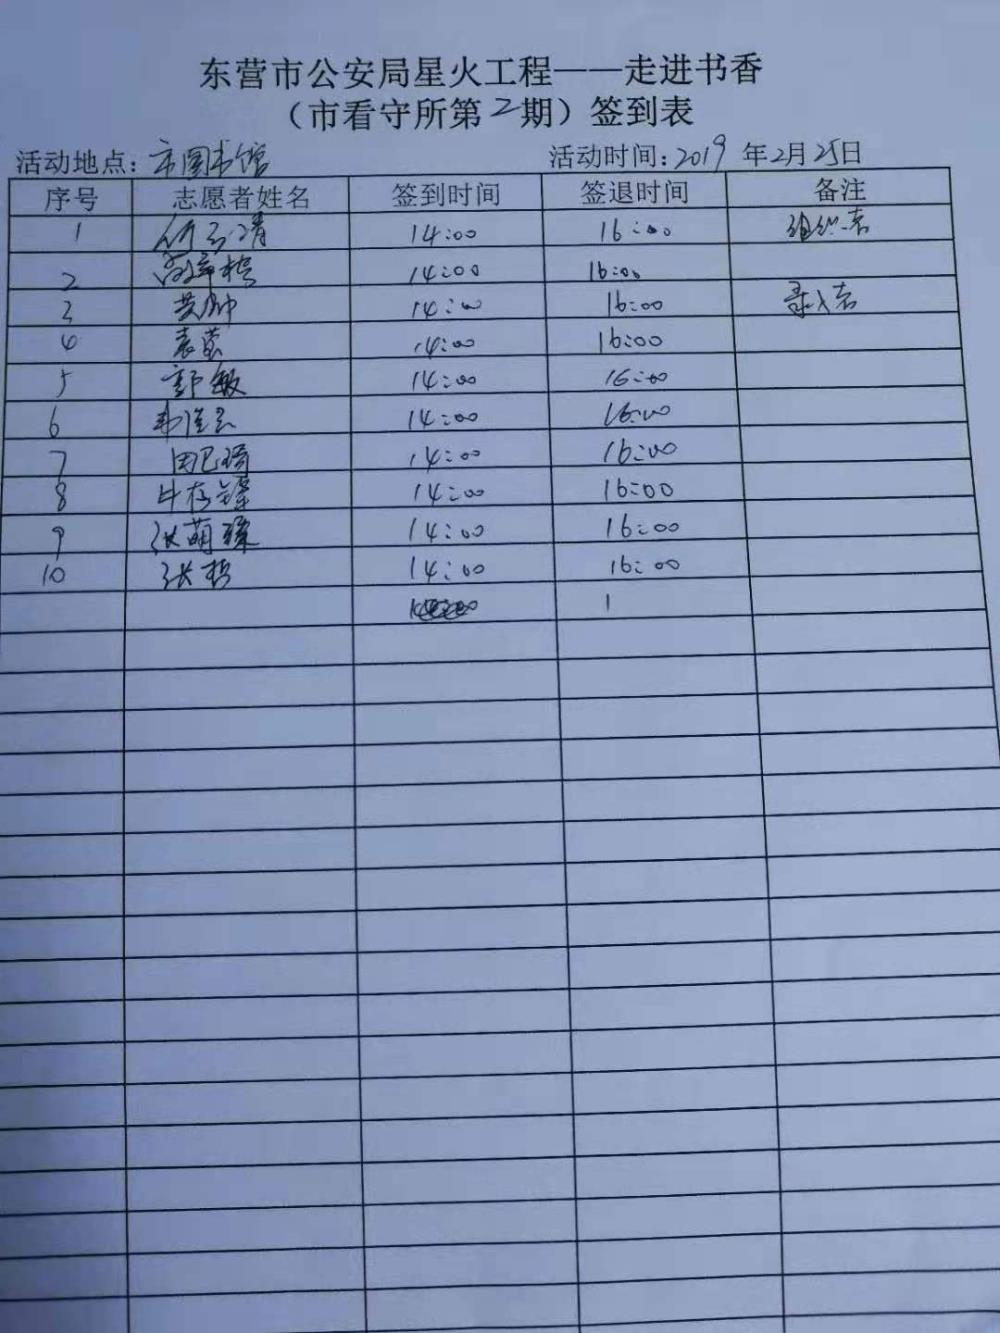 东营市公安局星火工程——走进书香
（市看守所第2期）签到表
活动地点：市图书馆 活动时间：2019年2月25日
序号 志愿者姓名 签到时间 签退时间 备注
1 14:00 16:00 组织者
2 14:00 16:00
3 14:00 16:00 录入者
4 袁萤 14:00 16:00
5 郭敏 14:00 16:00
6 14:00 16:00
7 14:00 16:00
8 14:00 16:00
9 张萌 14:00 16:00
10 张梅 14:00 16:00
1